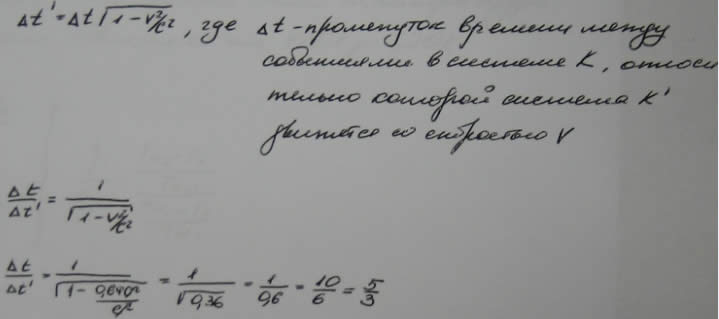 Δt' = Δt√(1 - V²/c²), где Δt - промежуток времени между
событиями в системе К, относи
тельно которой система К'
движется со скоростью V
Δt/Δt' = 1/√(1 - V²/c²)
Δt/Δt' = 1/√(1 - 0,64c²/c²) = 1/√0,36 = 1/0,6 = 10/6 = 5/3